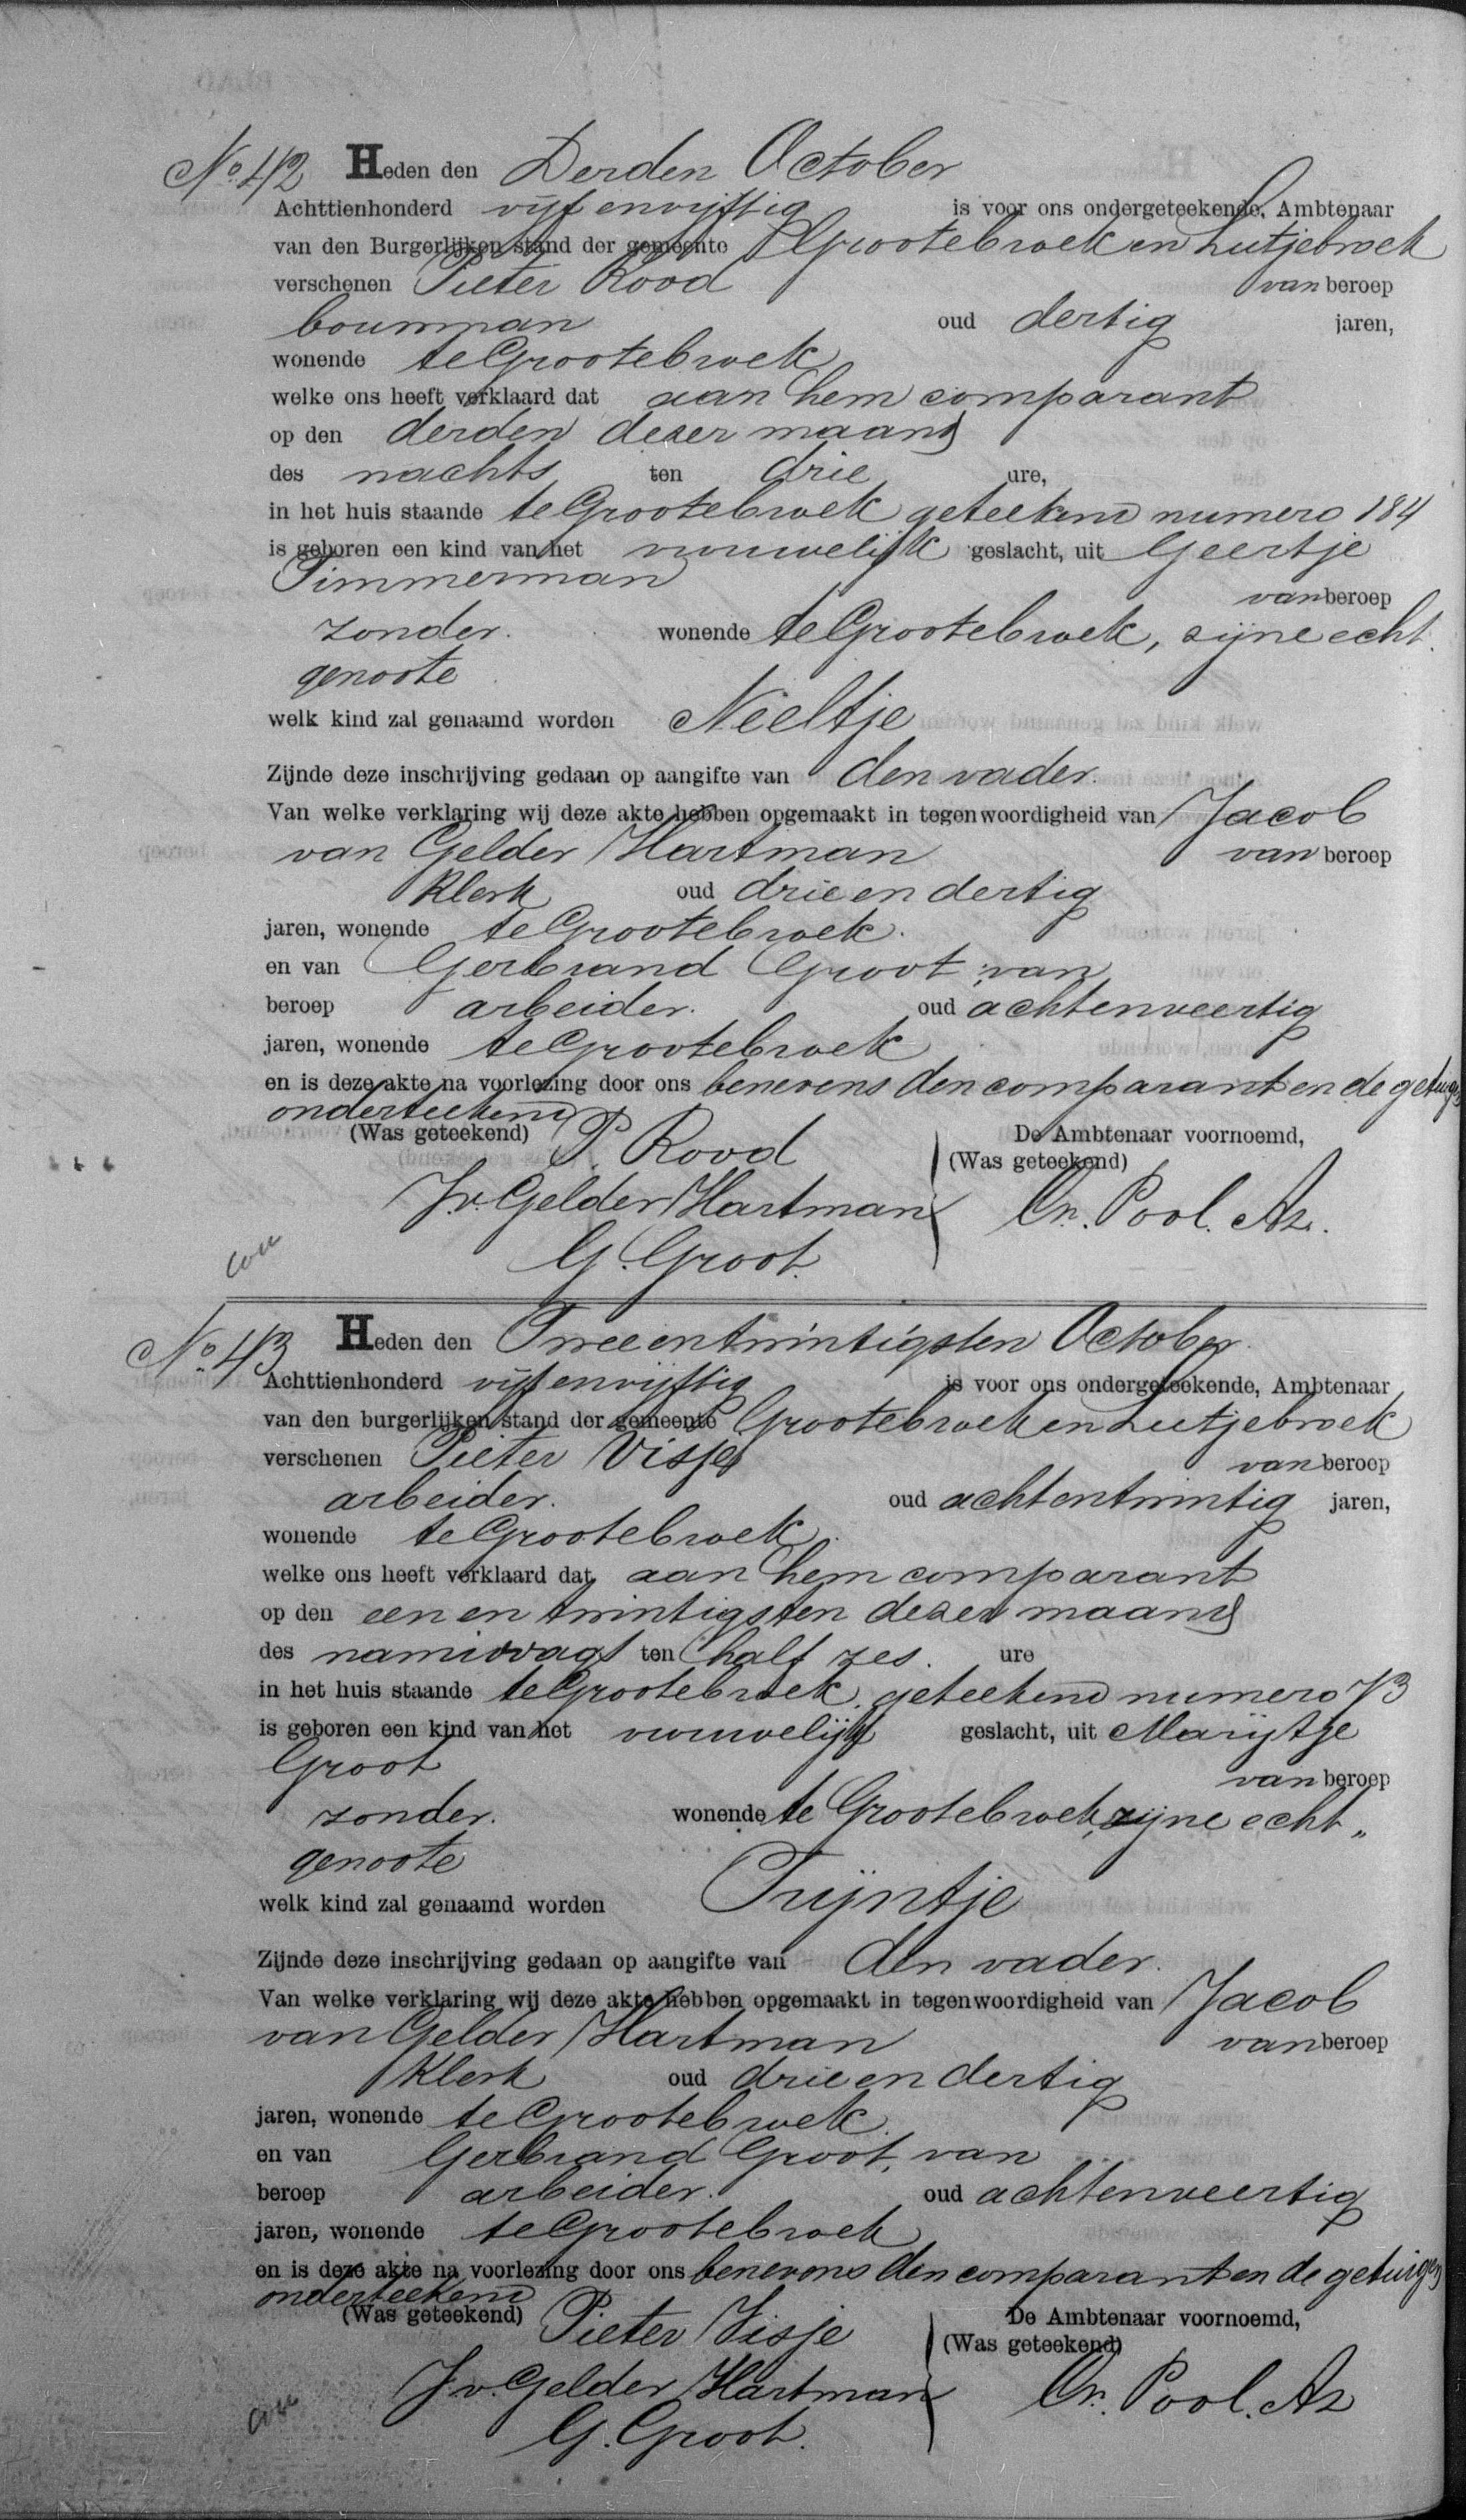 No. 42 Heden den Derden October
Achttienhonderd vijf en vijftig is voor ons ondergeteekende, Ambtenaar
van den Burgerlijken stand der gemeente Grootebroek en Lutjebroek
verschenen Pieter Rood van beroep
bouwman oud dertig jaren,
wonende te Grootebroek
welke ons heeft verklaard dat aan hem comparant
op den derden dezer maand
des nachts ten drie ure,
in het huis staande te Grootebroek geteekend numero 184
is geboren een kind van het vrouwelijk geslacht, uit Geertje
Timmerman van beroep
zonder. wonende te Grootebroek, zijne echt
genoote
welk kind zal genaamd worden Neeltje
Zijnde deze inschrijving gedaan op aangifte van den vader.
Van welke verklaring wij deze akte hebben opgemaakt in tegenwoordigheid van Jacob
van Gelder Hartman van beroep
Klerk oud drie en dertig
jaren, wonende te Grootebroek.
en van Gerbrand Groot, van
beroep arbeider. oud achtenveertig
jaren, wonende te Grootebroek
en is deze akte na voorlezing door ons benevens den comparant en de getuigen
onderteekend
(Was geteekend) P. Rood De Ambtenaar voornoemd,
(Was geteekend)
J. v. Gelder Hartman Cn. Pool. Az.
G. Groot.
No. 43 Heden den Tweeentwintigsten October.
Achttienhonderd vijf en vijftig is voor ons ondergeteekende, Ambtenaar
van den burgerlijken stand der gemeente Grootebroek en Lutjebroek
verschenen Pieter Visje van beroep
arbeider. oud achtentwintig jaren,
wonende te Grootebroek.
welke ons heeft verklaard dat aan hem comparant
op den een en twintigsten dezer maand
des namiddags ten half zes. ure
in het huis staande te Grootebroek, geteekend numero 73
is geboren een kind van het vrouwelijk geslacht, uit Marijtje
Groot van beroep
zonder. wonende te Grootebroek, zijne echt„
genoote
welk kind zal genaamd worden Trijntje
Zijnde deze inschrijving gedaan op aangifte van den vader.
Van welke verklaring wij deze akte hebben opgemaakt in tegenwoordigheid van Jacob
van Gelder Hartman van beroep
Klerk oud drie en dertig
jaren, wonende te Grootebroek.
en van Gerbrand Groot, van
beroep arbeider. oud achtenveertig
jaren, wonende te Grootebroek
en is deze akte na voorlezing door ons benevens den comparant en de getuigen
onderteekend
(Was geteekend) Pieter Visje De Ambtenaar voornoemd,
(Was geteekend)
J. v. Gelder Hartman Cn. Pool. Az
G. Groot.